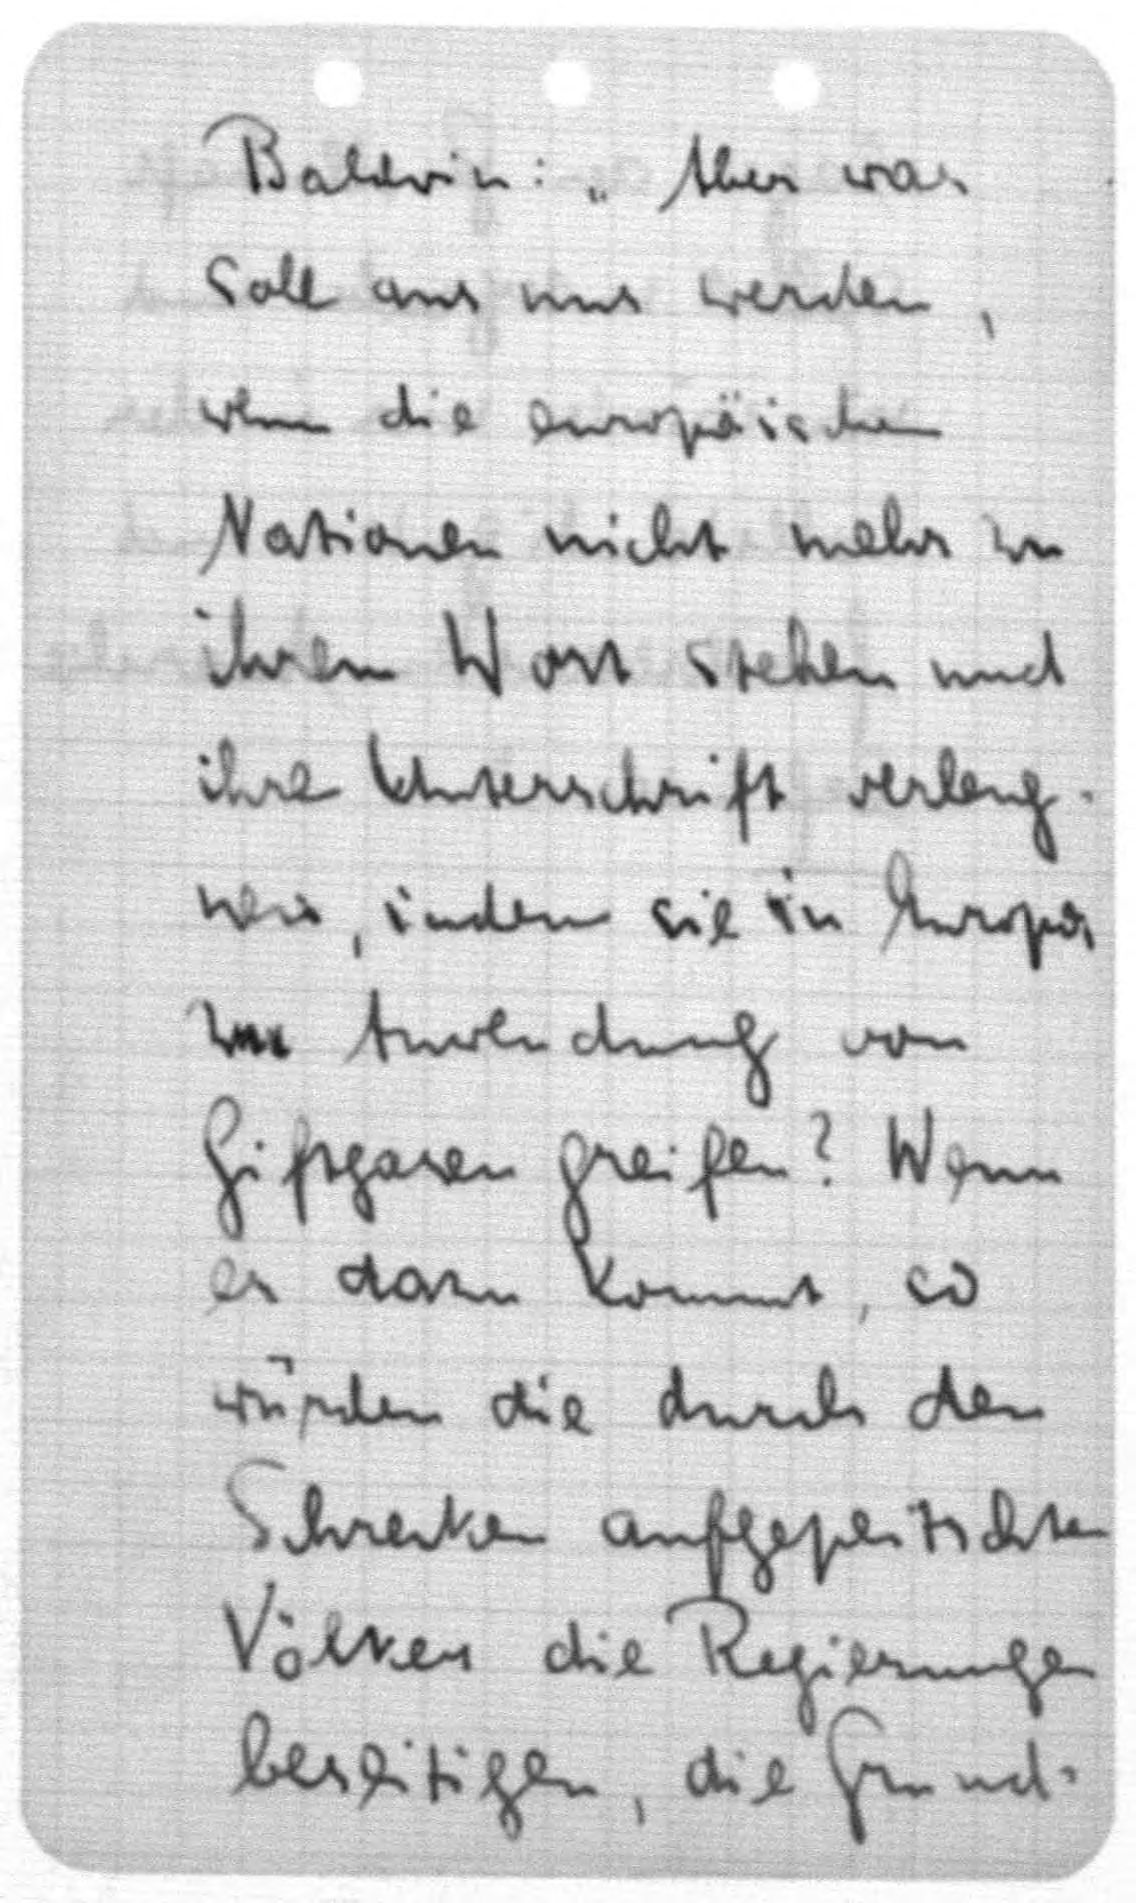 Baldwin: „Aber was
soll aus uns werden,
wenn die europäischen
Nationen nicht mehr zu
ihrem Wort stehen und
ihre Unterschrift verleug-
nen, indem sie in Europa
zur Anwendung von
Giftgasen greifen? Wenn
es dazu kommt, so
würden die durch den
Schrecken aufgepeitschten
Völker die Regierungen
beseitigen, die Grund-